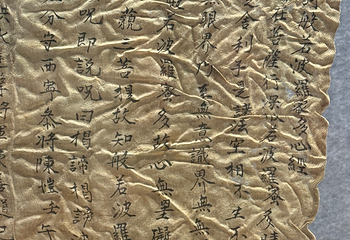 般若波羅蜜多心經
在菩薩行深般若波羅蜜多
舍利子是諸法空相不生不
眼界乃至無意識界無無
若波羅蜜多故心無罣礙
藐三菩提故知般若波羅
呪即說呪曰揭諦揭諦
分守西寧叅將陳愷壬午